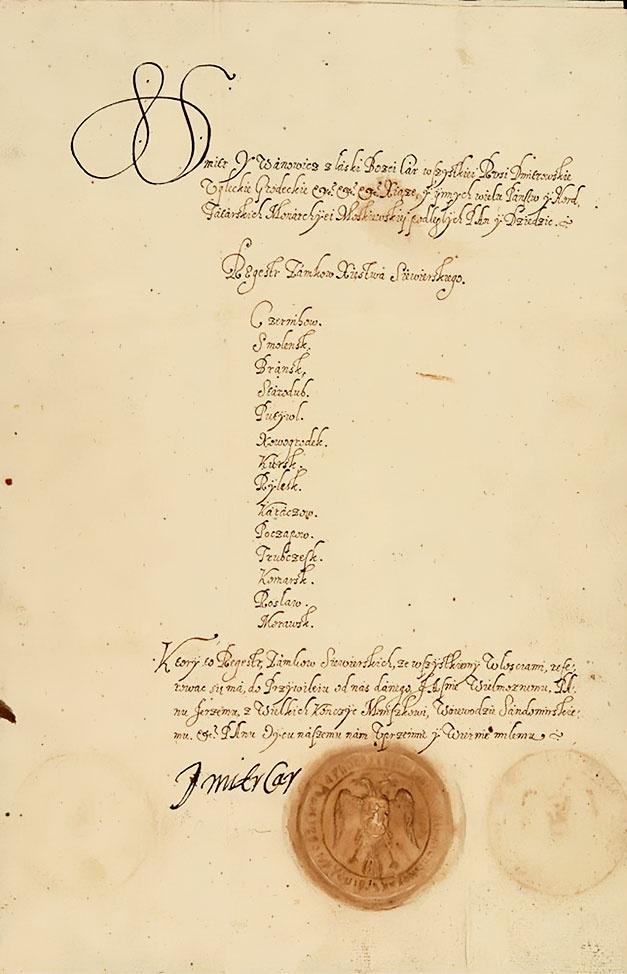 Dmitr Y Wanowicz z łaski Bozei Car wszystkiei Rusi Dmitrowskie
Uglickie Grodeckie etc. etc. etc. Xiąze, y innych wielu Państw y Hord
Tátárskich Monárchyei Moskiewskiey podległych PAn y Dziedzic.
Regestr Zámkow Xięstwá Siewierskiego.
Czernihow.
Smolensk.
Bránsk.
Stárodub.
Putywl.
Nowogrodek.
Kursk.
Rylsk.
Karáczow.
Poczapow.
Trubczesk.
Komarsk.
Roslaw.
Morawsk.
Ktory to Regestr, Zámkow Siewierskich, ze wszystkiemy Wlosciami, refe-
rowac się má, do Przywileiu od nas dánego, JAsnie Wielmoznemu, PA-
nu Jerzemu, z Wielkich Kończyc Mniszkowi, Woiewodzie Sándomirskie-
mu. etc. PAnu Oycu nászemu nám Uprzeimie y Wiernie milemu
Dmitr Car